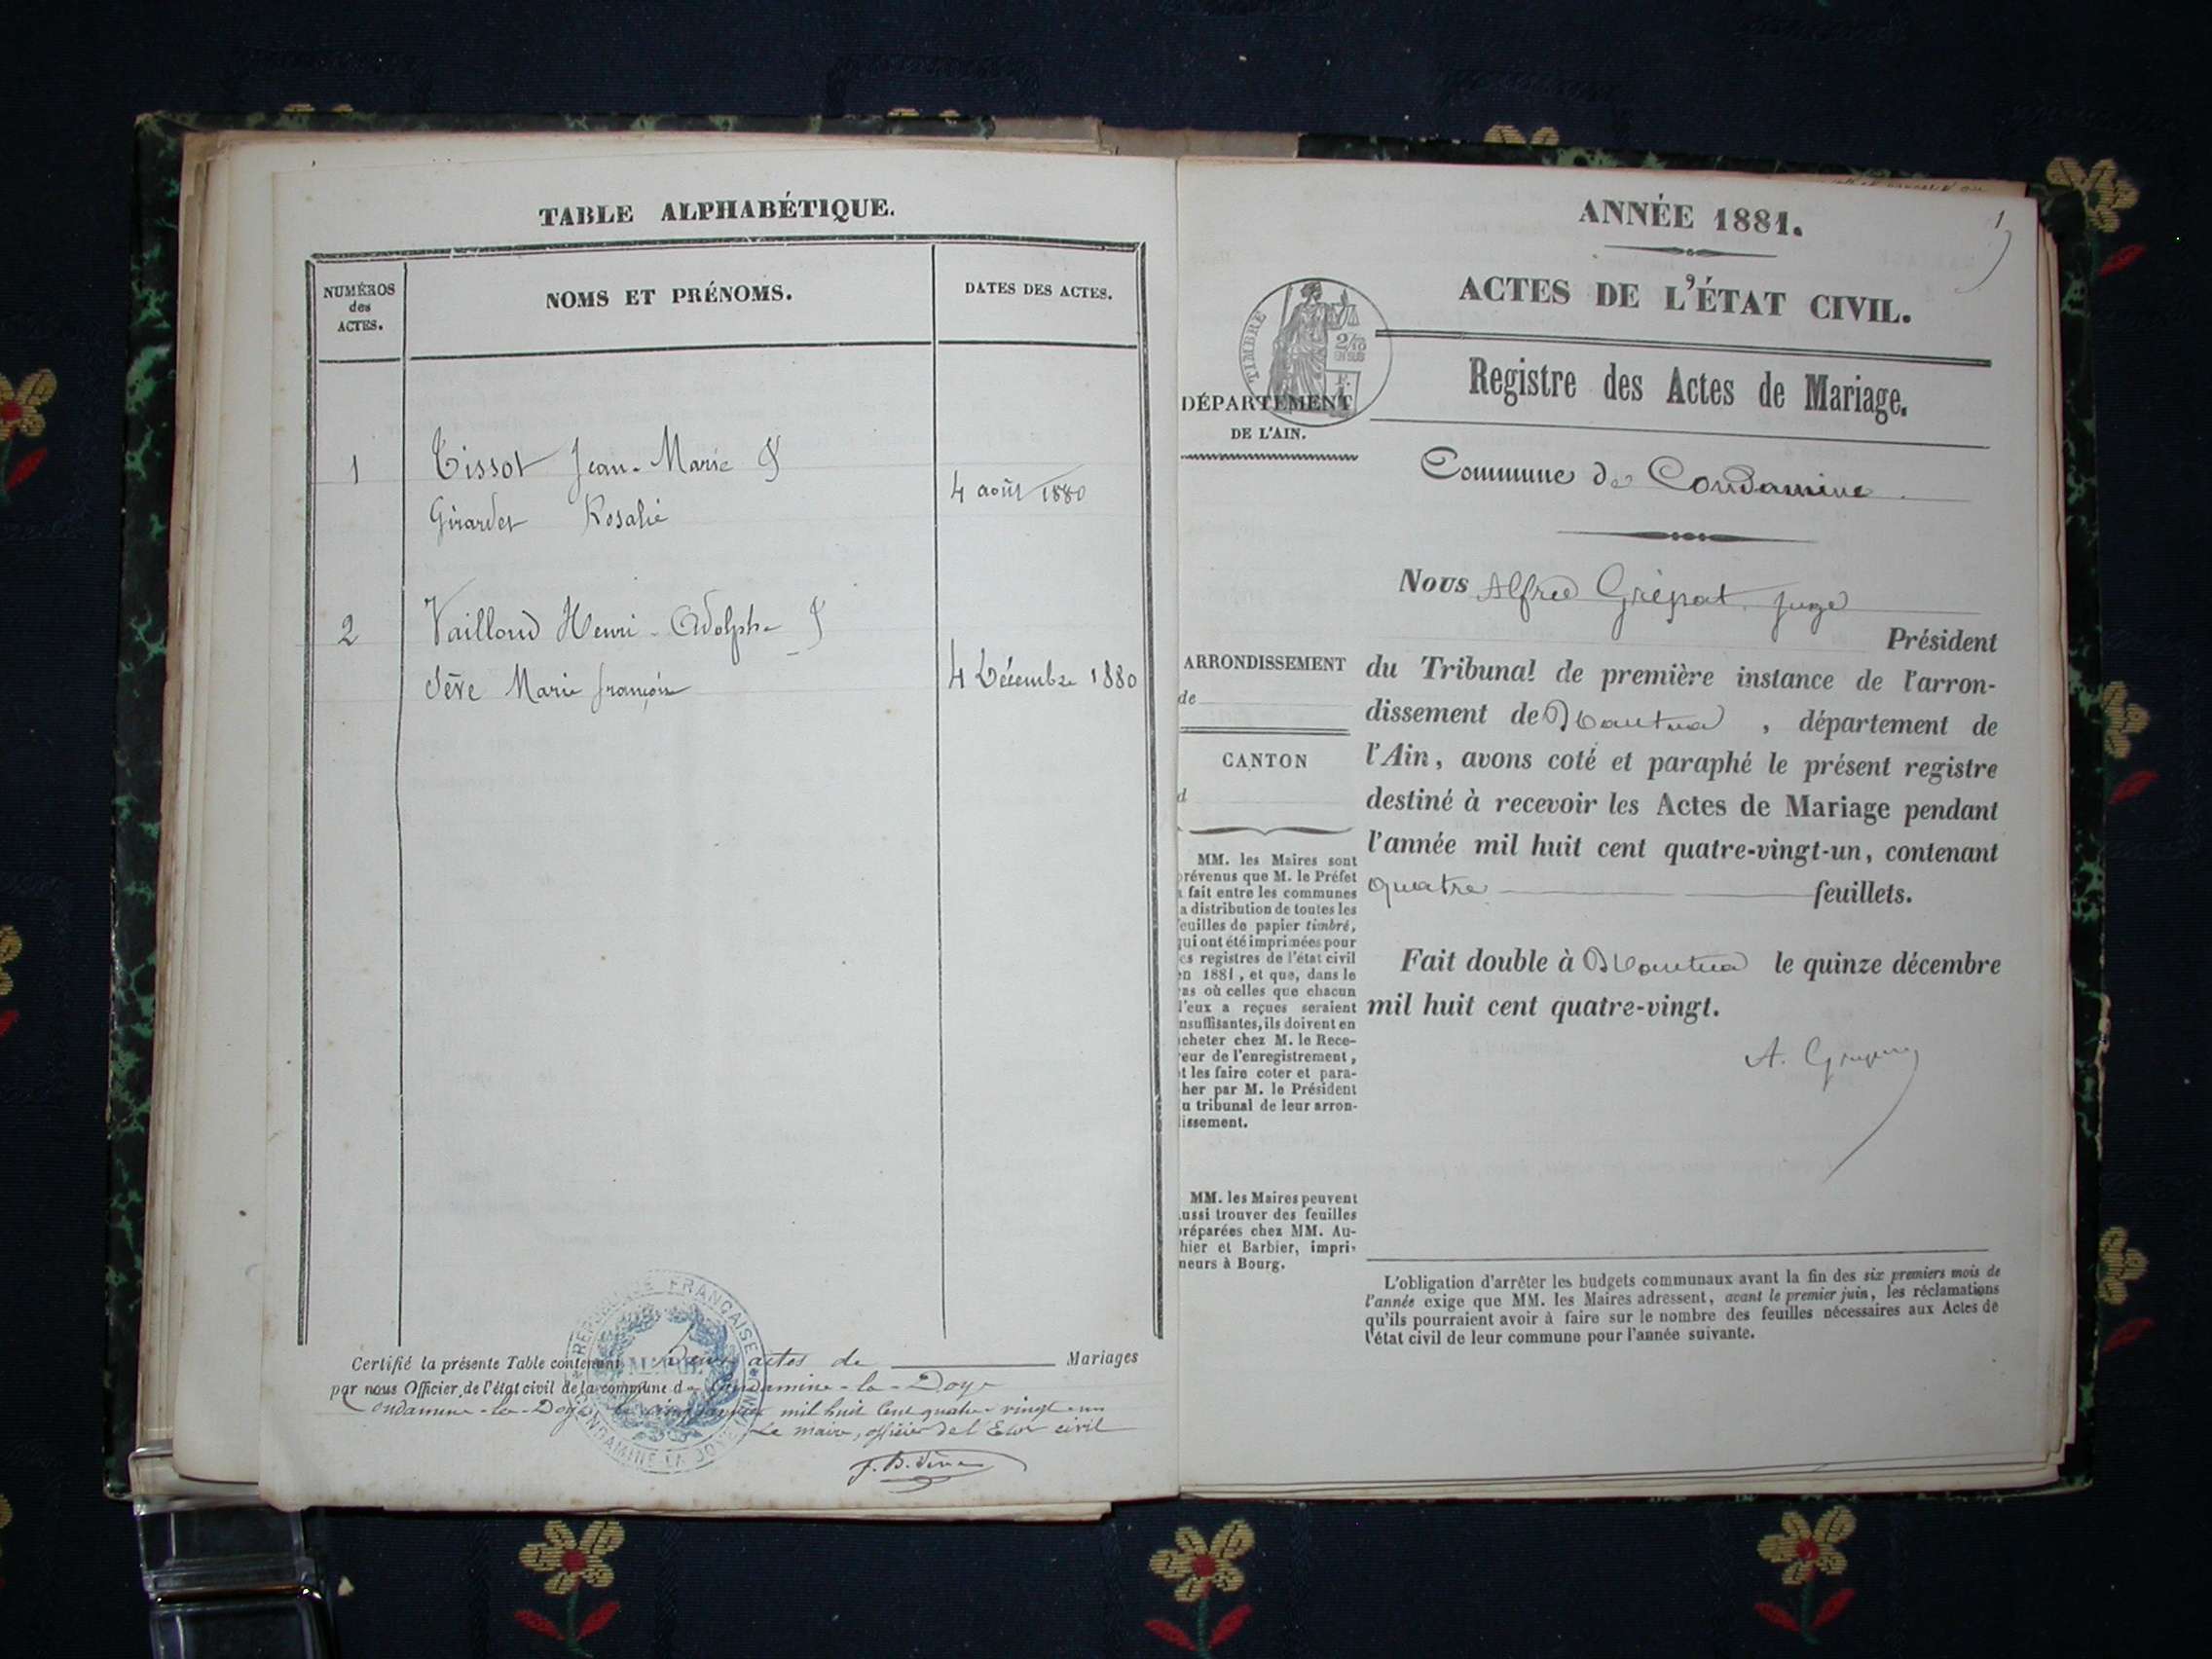 TABLE ALPHABÉTIQUE.
NUMÉROS
des
ACTES.
NOMS ET PRÉNOMS.
DATES DES ACTES.
1
Tissot Jean-Marie &
Girardet Rosalie
4 août 1880
2
Vailloud Henri-Adolphe &
Sève Marie françoise
4 Décembre 1880
Certifié la présente Table contenant Deux actes de Mariages
par nous Officier de l'état civil de la commune de Condamine-la-Doye
Condamine-la-Doye le cinq janvier mil huit cent quatre vingt un
Le maire, officier de l'Etat civil
RÉPUBLIQUE FRANÇAISE
MAIRIE
CONDAMINE LA DOYE (AIN)
1
ANNÉE 1881.
ACTES DE L'ÉTAT CIVIL.
TIMBRE
2/10
EN SUS
F.
1
Registre des Actes de Mariage.
DÉPARTEMENT
DE L'AIN.
Commune de Condamine
Nous Alfred Grépat, juge
Président
du Tribunal de première instance de l'arron-
dissement de Nantua , département de
l'Ain, avons coté et paraphé le présent registre
destiné à recevoir les Actes de Mariage pendant
l'année mil huit cent quatre-vingt-un, contenant
quatre feuillets.
Fait double à Nantua le quinze décembre
mil huit cent quatre-vingt.
A.
ARRONDISSEMENT
de
CANTON
d
MM. les Maires sont
prévenus que M. le Préfet
a fait entre les communes
la distribution de toutes les
feuilles de papier timbré,
qui ont été imprimées pour
les registres de l'état civil
en 1881, et que, dans le
cas où celles que chacun
d'eux a reçues seraient
insuffisantes, ils doivent en
acheter chez M. le Rece-
veur de l'enregistrement,
et les faire coter et para-
pher par M. le Président
du tribunal de leur arron-
dissement.
MM. les Maires peuvent
aussi trouver des feuilles
préparées chez MM. Au-
thier et Barbier, impri-
meurs à Bourg.
L'obligation d'arrêter les budgets communaux avant la fin des six premiers mois de
l'année exige que MM. les Maires adressent, avant le premier juin, les réclamations
qu'ils pourraient avoir à faire sur le nombre des feuilles nécessaires aux Actes de
l'état civil de leur commune pour l'année suivante.